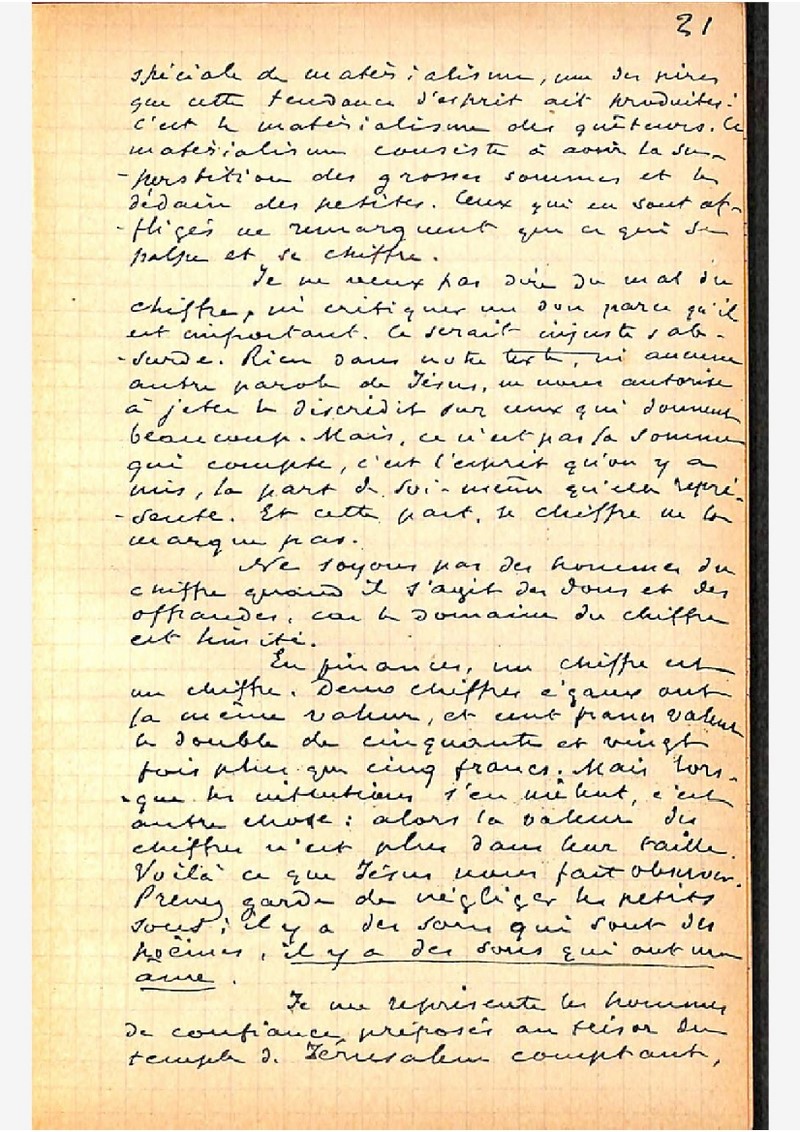 31
spéciale de matérialisme, une des pires
que cette tendance d'esprit ait produites:
c'est le matérialisme des quêteurs. Ce
matérialisme consiste à avoir la su-
-perstition des grosses sommes et le
dédain des petites. Ceux qui en sont af-
-fligés ne remarquent que ce qui se
palpe et se chiffre.
Je ne veux pas dire du mal du
chiffre, ni critiquer un don parce qu'il
est important. Ce serait injuste & ab-
-surde. Rien dans notre texte, ni aucune
autre parole de Jésus, ne nous autorise
à jeter le discrédit sur ceux qui donnent
beaucoup. Mais, ce n'est pas la somme
qui compte, c'est l'esprit qu'on y a
mis, la part de soi-même qu'elle repré-
-sente. Et cette part, le chiffre ne la
marque pas.
Ne soyons pas des hommes du
chiffre quand il s'agit des dons et des
offrandes, car le domaine du chiffre
est limité.
En finances, un chiffre est
un chiffre. Deux chiffres égaux ont
la même valeur, et cent francs valent
le double de cinquante et vingt
fois plus que cinq francs. Mais lors-
-que les intentions s'en mêlent, c'est
autre chose: alors la valeur des
chiffres n'est plus dans leur taille.
Voilà ce que Jésus nous fait observer.
Prenez garde de négliger les petits
sous; il y a des sous qui sont des
poèmes, il y a des sous qui ont une
âme.
Je me représente les hommes
de confiance, préposés au trésor du
temple de Jérusalem comptant,